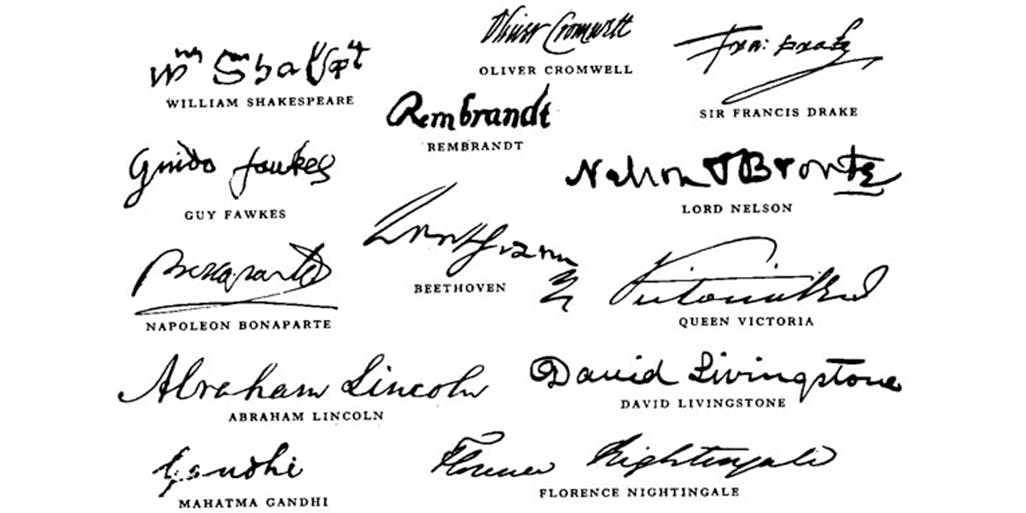 Wm Shakspt
WILLIAM SHAKESPEARE
Oliver Cromwell
OLIVER CROMWELL
Fra: Drake
SIR FRANCIS DRAKE
Rembrandt
REMBRANDT
Guido fawkes
GUY FAWKES
Nelson & Bronte
LORD NELSON
BEETHOVEN
Bonaparte
NAPOLEON BONAPARTE
Victoria
QUEEN VICTORIA
Abraham Lincoln
ABRAHAM LINCOLN
David Livingstone
DAVID LIVINGSTONE
Gandhi
MAHATMA GANDHI
Florence Nightingale
FLORENCE NIGHTINGALE